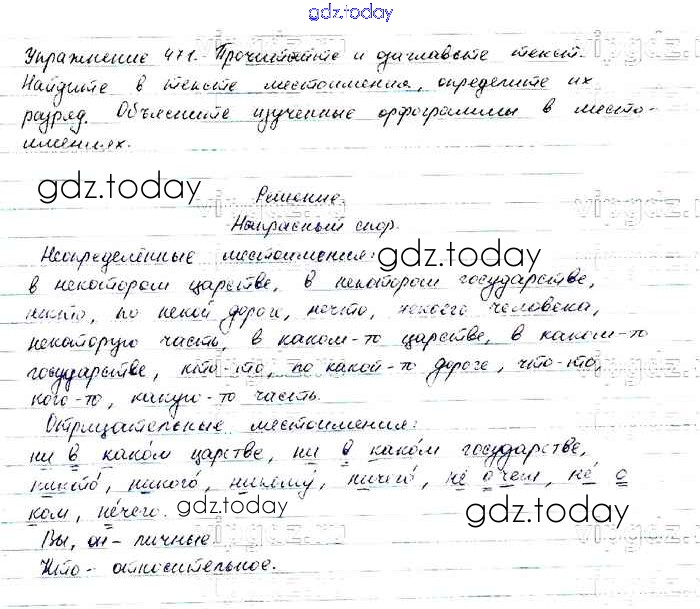 gdz.today
Упражнение 471. Прочитайте и озаглавьте текст.
Найдите в тексте местоимения, определите их
разряд. Объясните изученные орфограммы в место-
имениях.
gdz.today
Решение
Напрасный спор.
Неопределённые местоимения:
gdz.today
в некотором царстве, в некотором государстве,
некто, по некой дороге, нечто, некоего человека,
некоторую часть, в каком-то царстве, в каком-то
государстве, кто-то, по какой-то дороге, что-то,
кого-то, какую-то часть.
Отрицательные местоимения:
ни в каком царстве, ни в каком государстве,
никто, никого, ничему, ничего, не о чем, не о
ком, нечего.
gdz.today
gdz.today
Вы, он - личные.
Что - относительное.